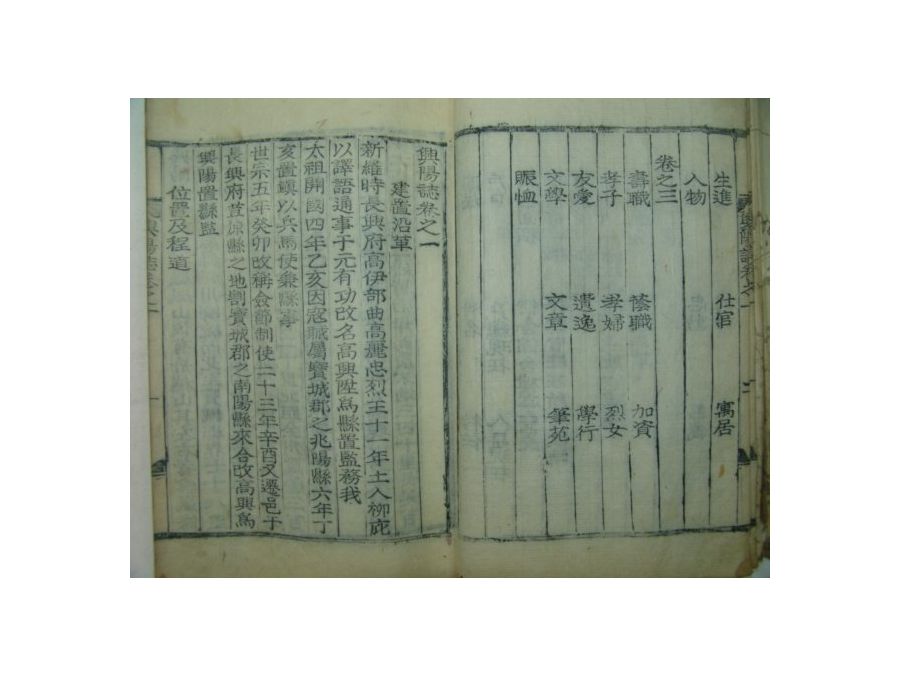 生進 仕官 寓居
人物
卷之三
壽職 蔭職 加資
孝子 孝婦 烈女
友愛 遺逸 學行
文學 文章 筆苑
賑恤
興陽誌卷之一
建置沿革
新羅時長興府高伊部曲高麗忠烈王十一年土人柳庇
以譯語通事于元有功改名高興陞爲縣置監務我
太祖開國四年乙亥因寇賊屬寶城郡之兆陽縣六年丁
亥置鎭以兵馬使兼縣事
世宗五年癸卯改稱僉節制使二十三年辛酉又遷邑于
長興府荳原縣之地割寶城郡之南陽縣來合改高興爲
興陽置縣監
位置及程道